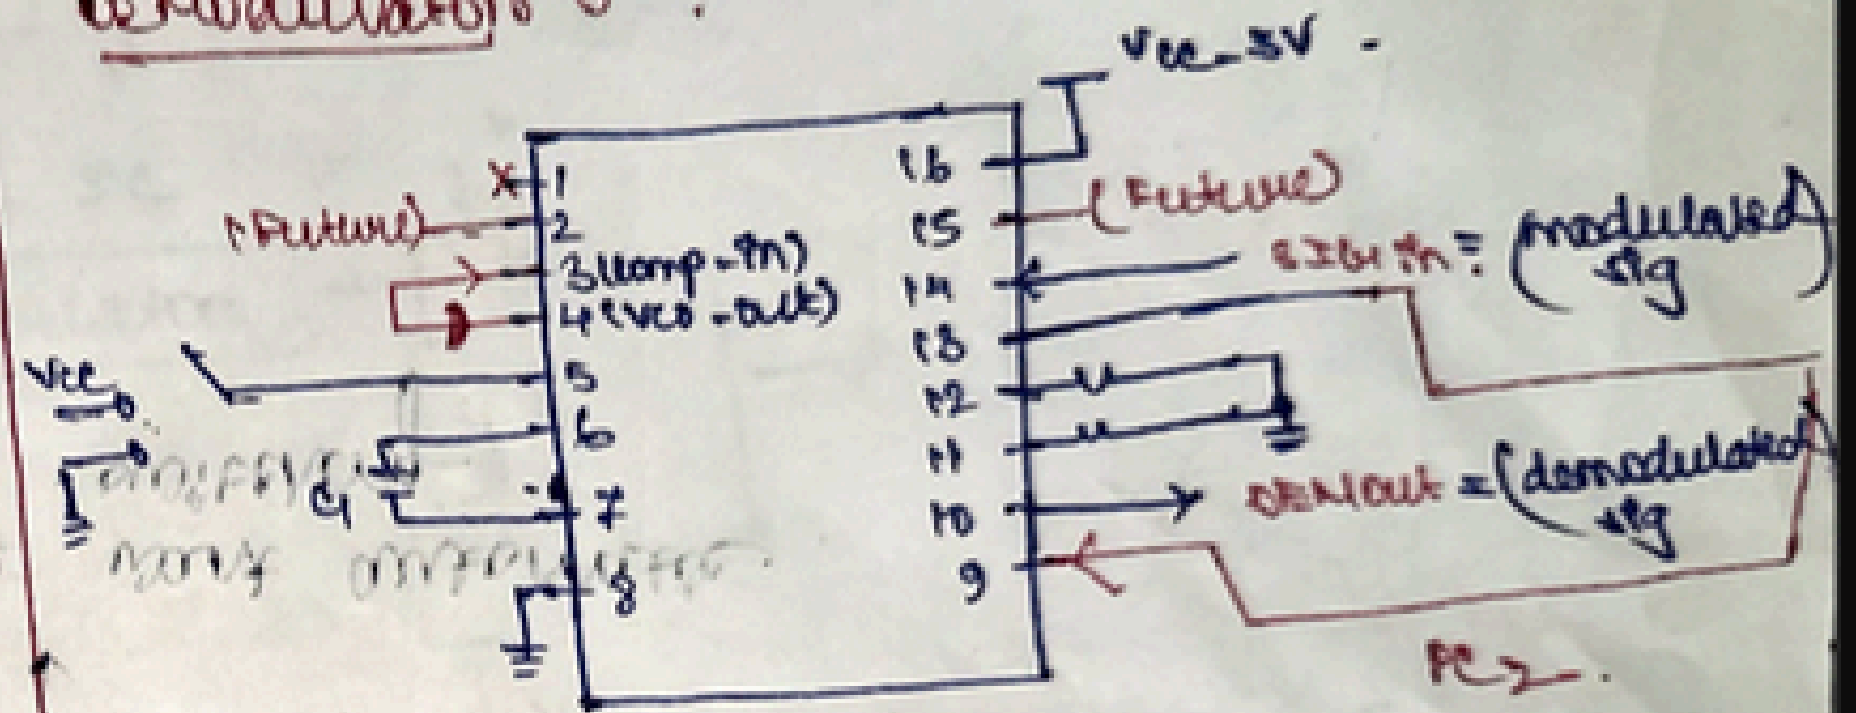 Vcc - 5V
1
2
(Future)
3 (Comp - In)
4 (VCO - Out)
5
6
7
8
Vcc
C1
16
15
(Future)
14
SIG In = (modulated sig)
13
12
11
10
DEMOut = (demodulated sig)
9
PC2